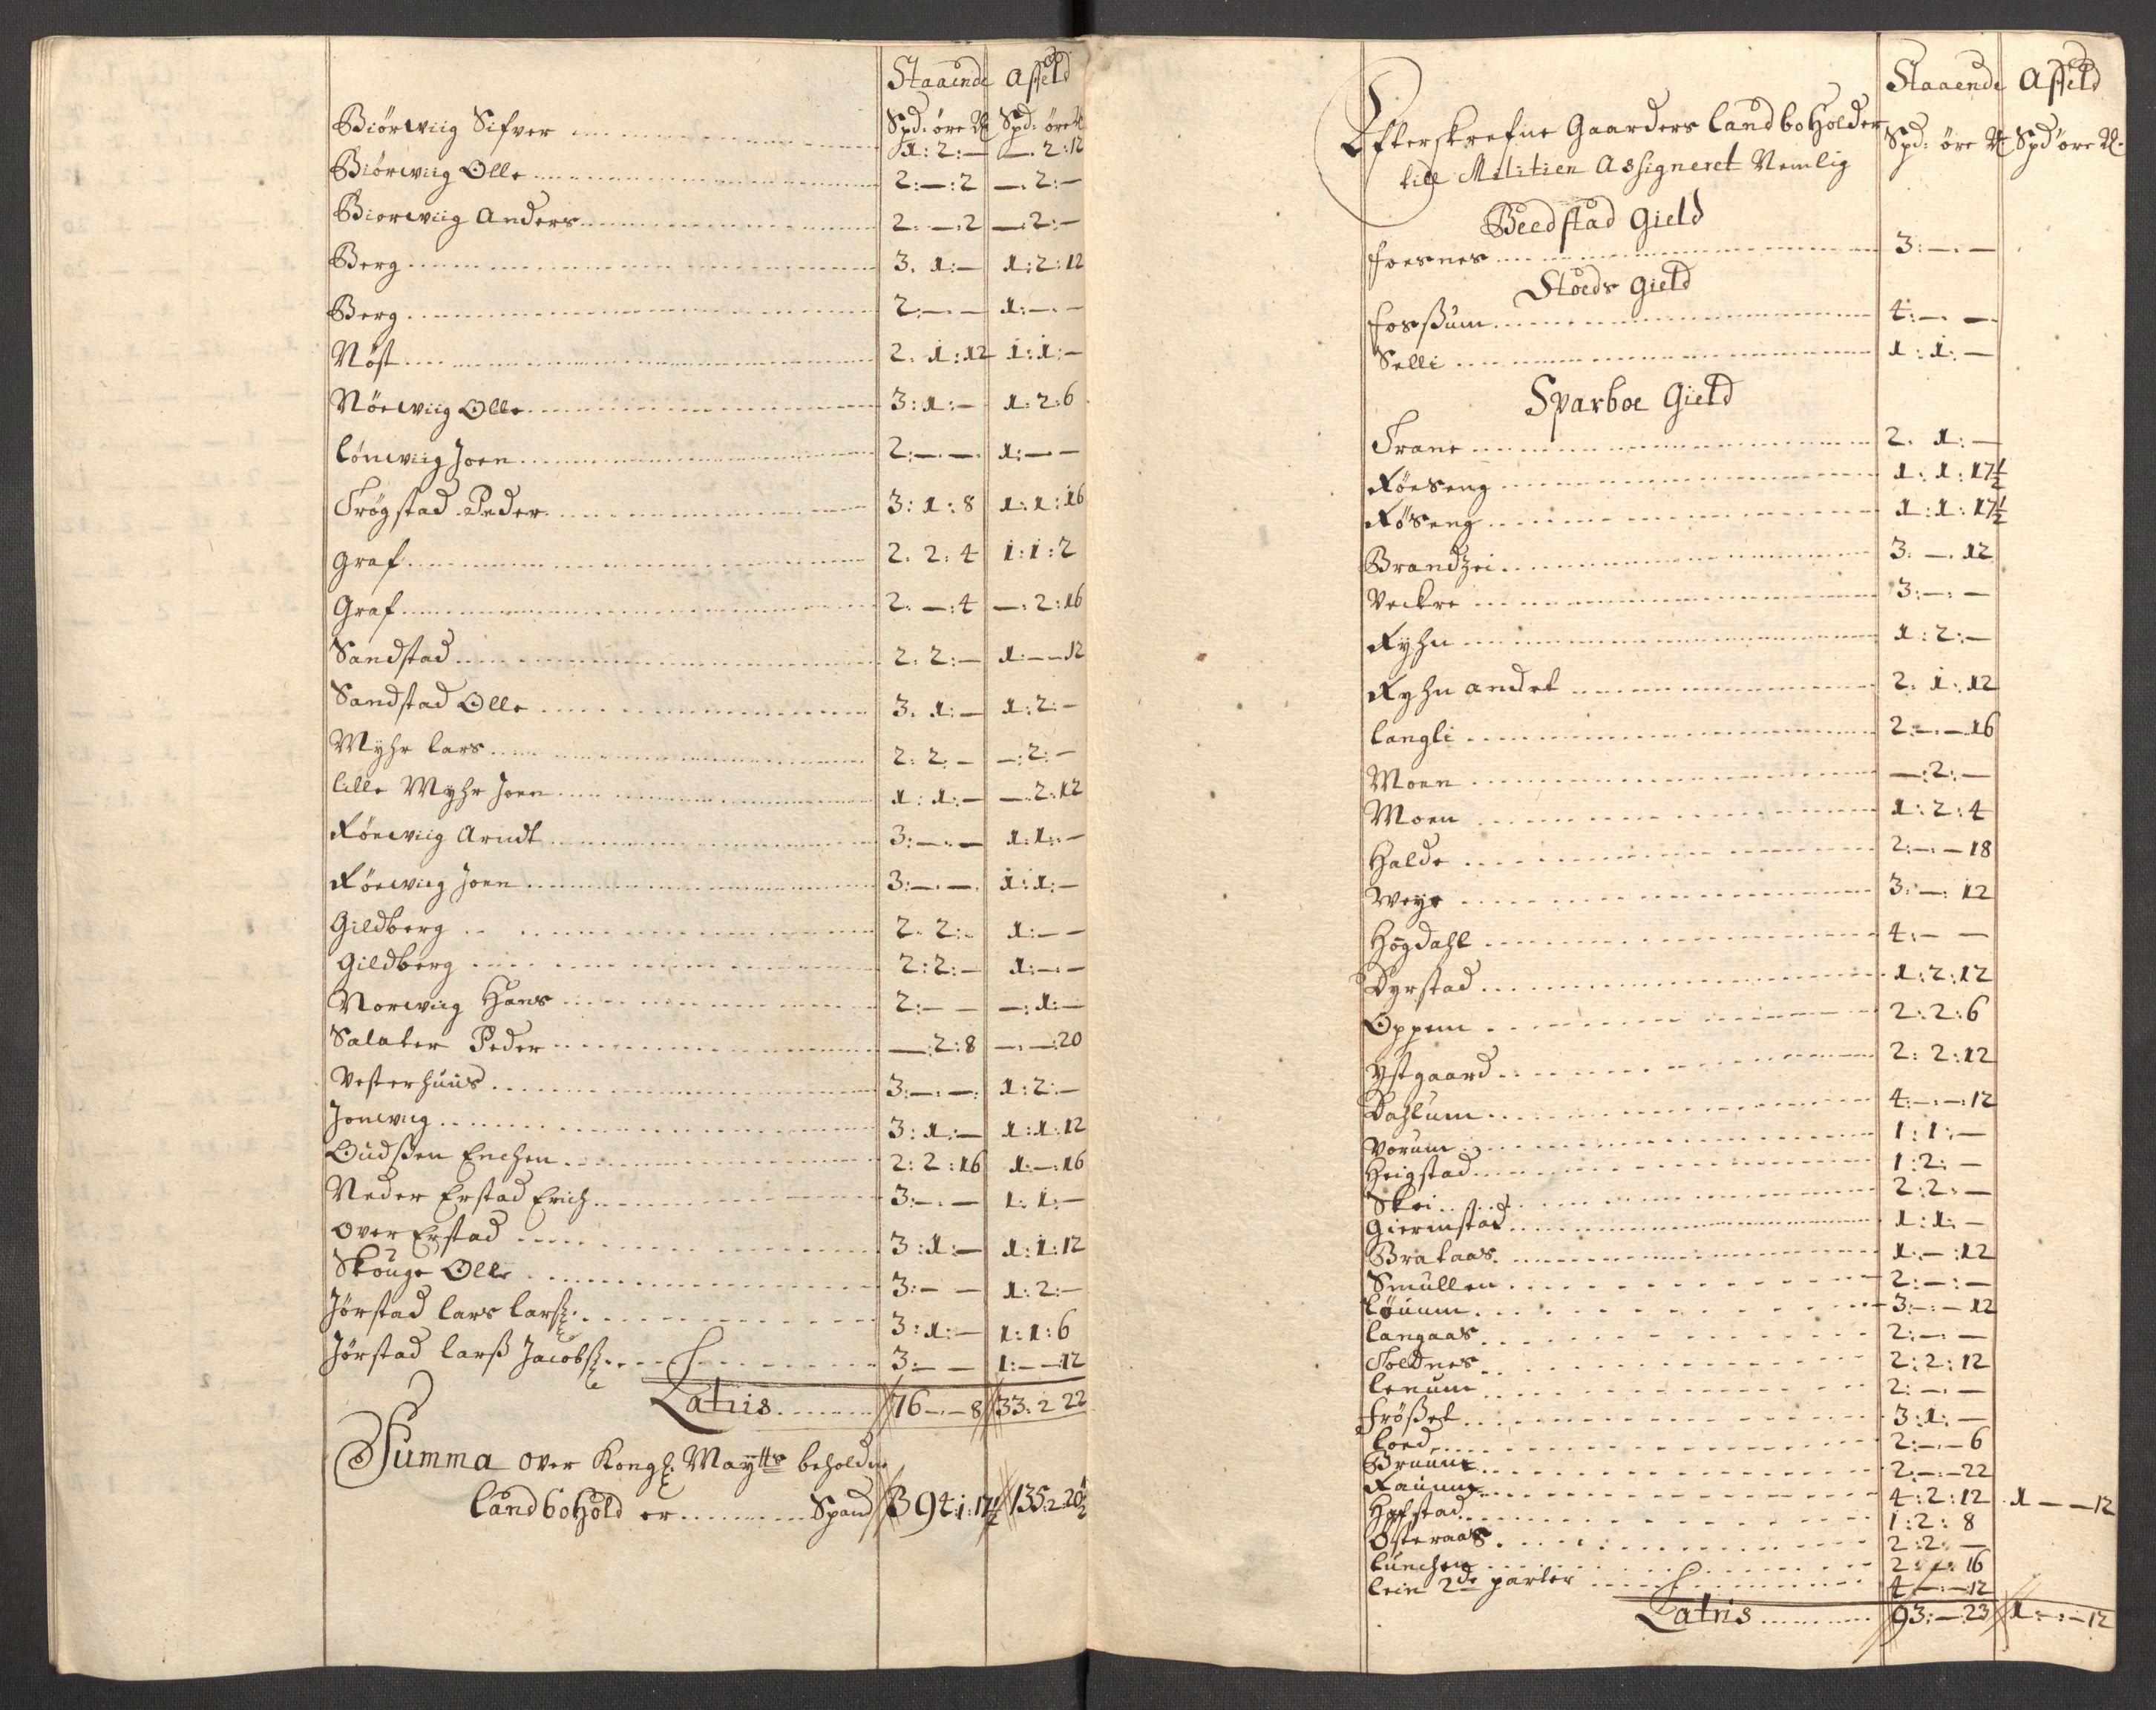 Staaende Affeld
Spd: øre Spd: øre
Biörwiig Sifver 1:2:— —.2:12
Biörwiig Olle 2:—:2 —.2:—
Biorwiig Anders 2.—.2 —.2:—
Berg 3.1:— 1:2:12
Berg 2:—.— 1:—.—
Nöst 2.1:12 1:1:—
Nöewiig Olle 3:1:— 1:2:6
Lönwiig Joen 2:—.—. 1:—.—
Trögstad Peder 3:1:8 1:1:16
Graf 2.2:4 1:1:2
Graf 2.—:4 —:2:16
Sandstad 2:2:— 1:—–12
Sandstad Olle 3.1:— 1:2:—
Myhr Lars 2:2:— —:2:—
Lille Myhr Joen 1:1:— —.2:12
Röewiig Arndt 3:—.— 1:1:—
Röewiig Joen 3:—.—. 1:1:—
Gildberg 2.2:– 1:—–
Gildberg 2:2:— 1:—.—
Norwiig Hans 2:— — —:1:—
Salater Peder —:2:8 —.—:20
Vesterhuus 3:—:—: 1:2:—
Jonwiig 3:1:— 1:1:12
Oudßen Enchen 2:2:16 1:—:16
Neder Erstad Erich 3:—.— 1:1:—
Over Erstad 3:1:— 1:1:12
Skouge Olle 3:— — 1:2:—
Jörstad Lars Larsß 3:1:— 1:1:6
Jörstad Larß Jacobsß 3:— — 1:——12
Latris 76—.—8 33:2 22
Summa over Kongl: Maytts beholdne
Landbohold er Spand 394:1:17½ 135:2:20½
Staaende Affeld
Efterskrefne Gaarders Landbo Holder Spd: øre Spd øre
till Militien Assigneret Nemlig
Beedstad Gield
Foesnes 3:—.—
Stoeds Gield
Fosßum 4:—. —.
Selli 1:1:—
Sparboe Gield
Trane 2.1:—
Röeseng 1:1:17½
Röseng 1:1:17½
Brandzei 3.—.12
Veckre 3:—:—
Ryhn 1:2:—
Ryhn andet 2.1.12
Langli 2:—.—16
Moen —:2:—
Moen 1:2:4
Halde 2:—:—18
Weye 3:—:12
Högdahl 4:— —
Dyrstad 1:2:12
Oppem 2:2:6
Ystgaard 2:2:12
Dahlum 4:—.—:12
Vorum 1:1:—
Heigstad 1:2:—
Skei 2:2:—
Giermstad 1:1:—
Brataas 1:—:12
Smullen 2:—:—
Löuum 3:—:—12
Langaas 2:—:—
Toldnes 2:2:12
Lenum 2:—.—
Frößet 3:1:—
Loed 2:—.—6
Bruum 2.—:—22
Rauum 4:2:12 .1——12
Hofstad 1:2:8
Osteraas 2:2 —
Lunchen 2.—.16
Lein 2de parter 4—:—12
Latris 93:—.23 1—:—12